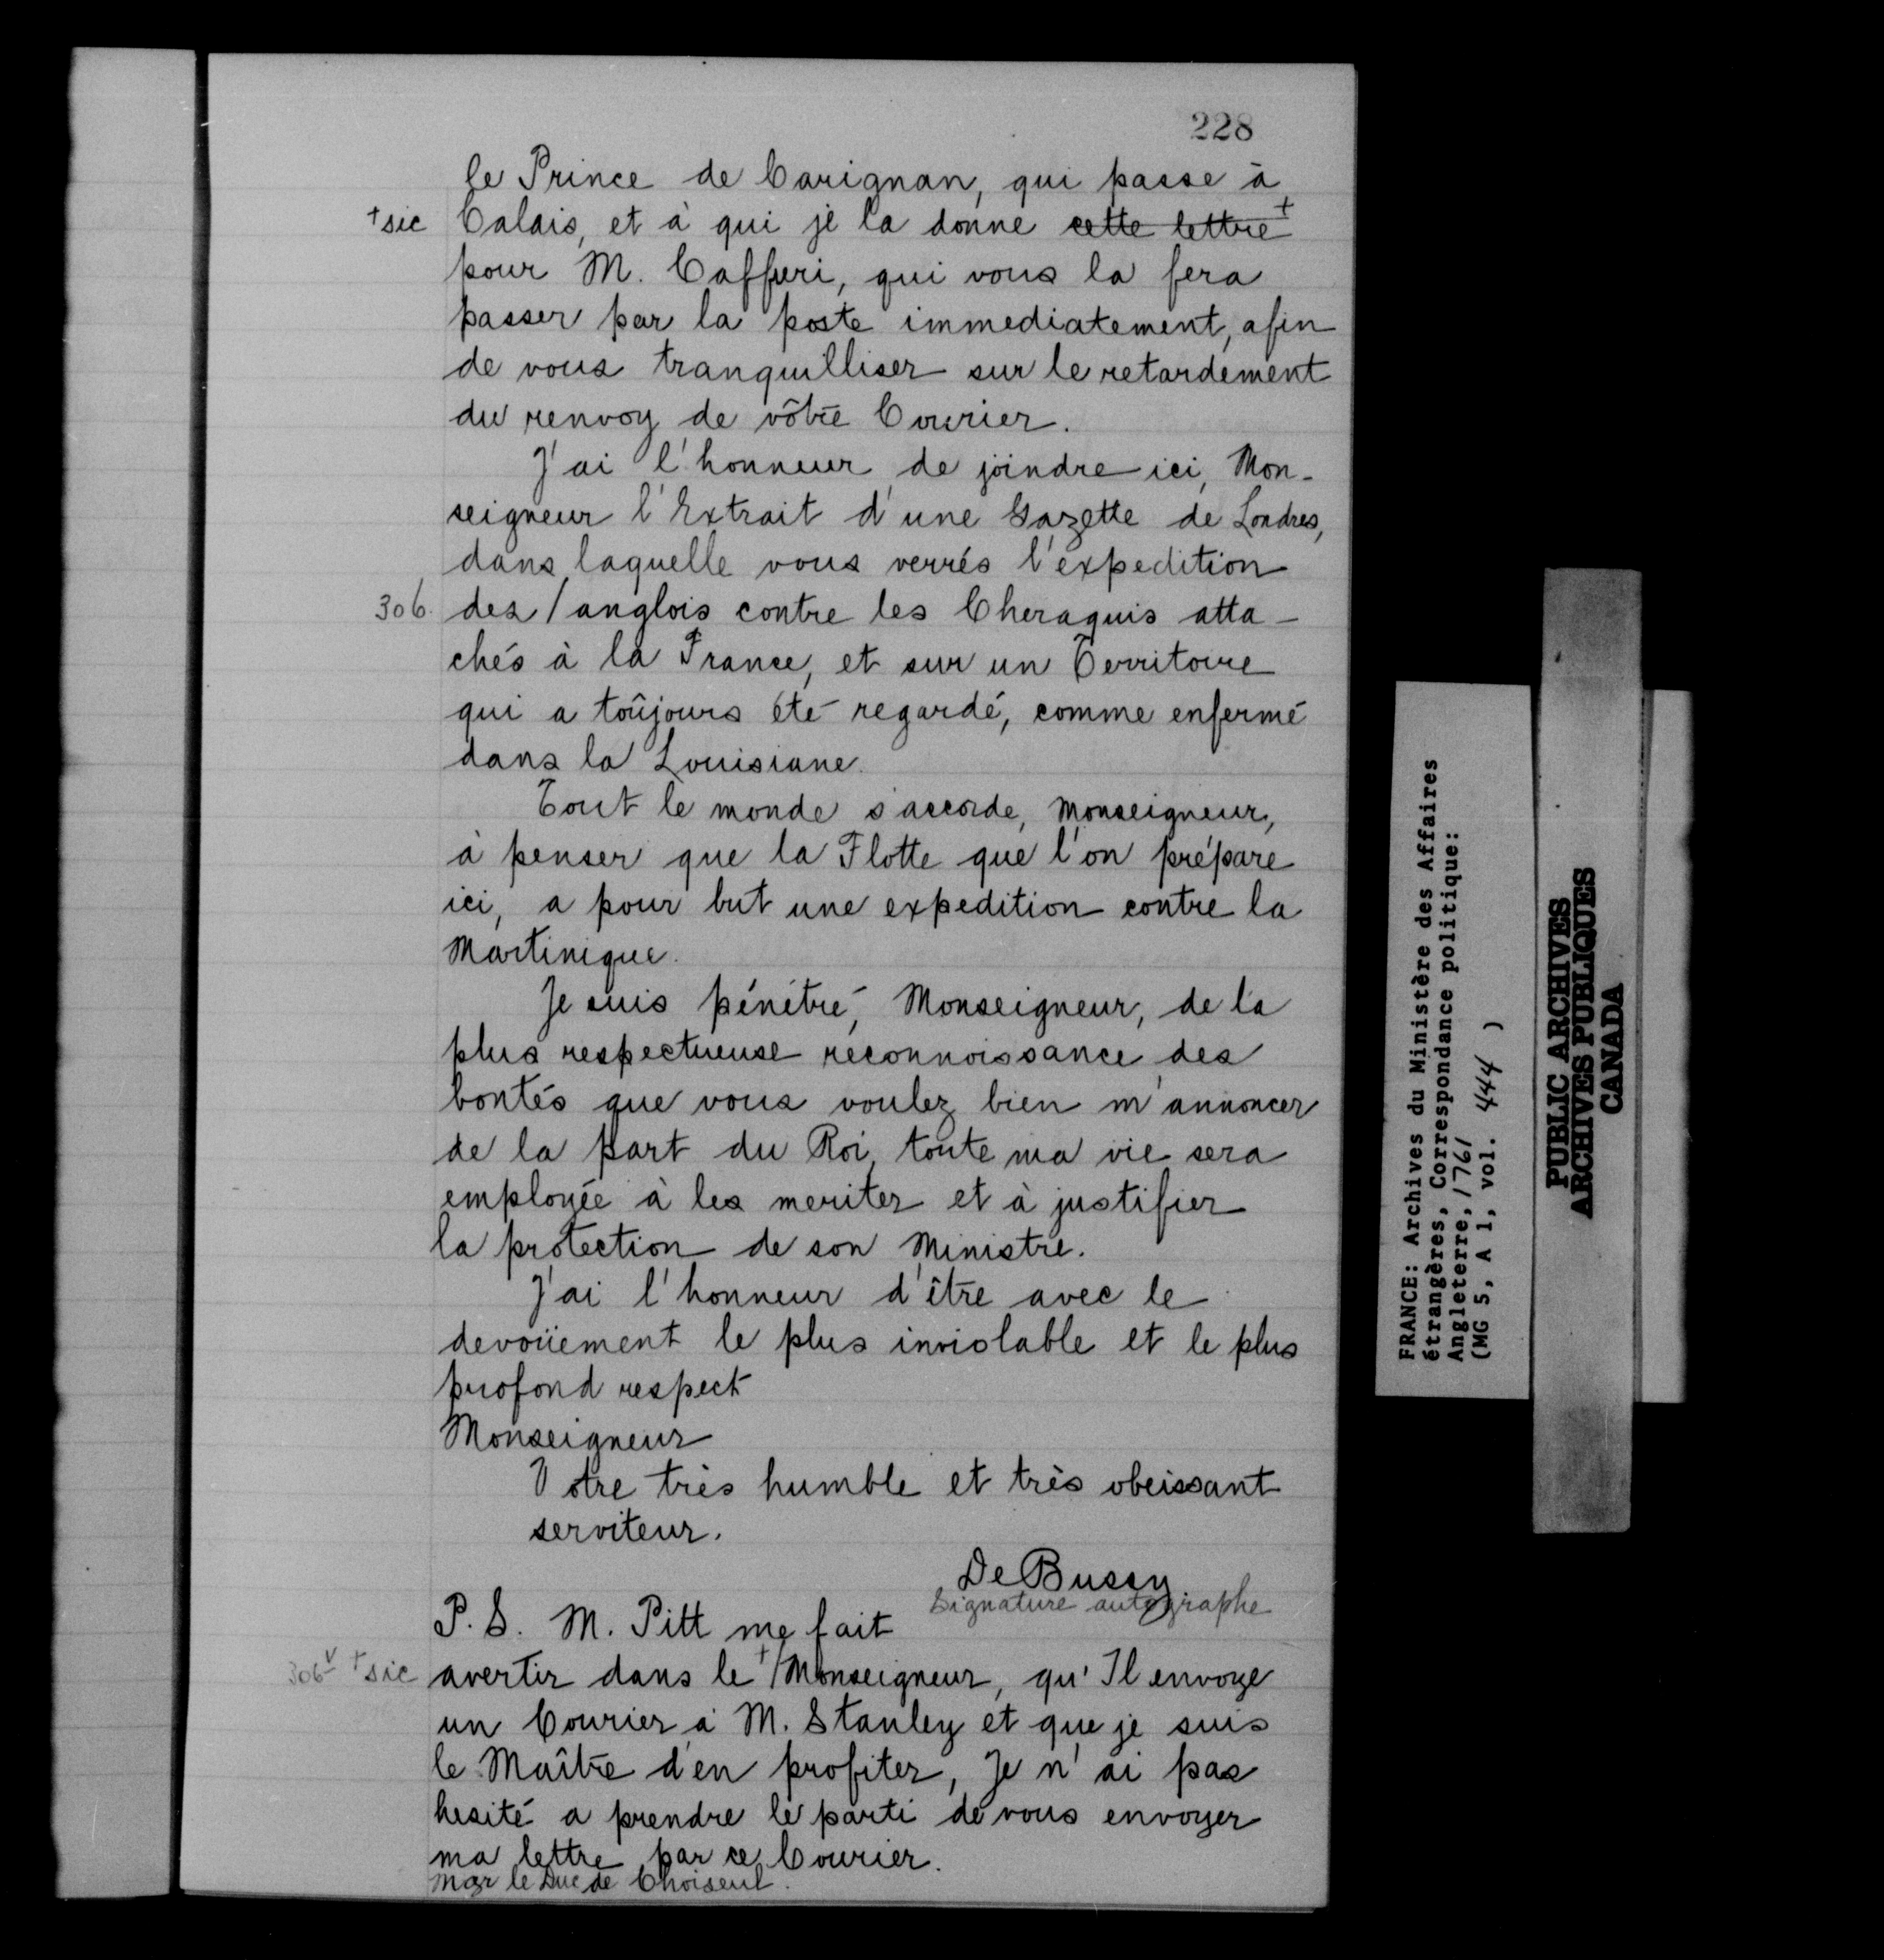 228
le Prince de Carignan, qui passe à
+sic Calais, et à qui je la donne cette lettre+
pour M. Caffieri, qui vous la fera
passer par la poste immediatement, afin
de vous tranquilliser sur le retardement
du renvoy de vôtre Courier.
J'ai l'honneur de joindre ici, Mon-
seigneur l'Extrait d'une Gazette de Londres,
dans laquelle vous verrés l'expedition
306. des / anglois contre les Cheraquis atta-
chés à la France, et sur un Territoire
qui a toûjours été regardé, comme enfermé
dans la Louisiane.
Tout le monde s'accorde, Monseigneur,
à penser que la Flotte que l'on prépare
ici, a pour but une expedition contre la
Martinique.
Je suis pénétré, Monseigneur, de la
plus respectueuse reconnoissance des
bontés que vous voulez bien m'annoncer
de la part du Roi, toute ma vie sera
employée à les meriter et à justifier
la protection de son Ministre.
J'ai l'honneur d'être avec le
devoüement le plus inviolable et le plus
profond respect
Monseigneur
Votre très humble et très obeissant
serviteur.
De Bussy
Signature autographe
P.S. M. Pitt me fait
306v +sic avertir dans le+ / Monseigneur, qu'Il envoye
un Courier à M. Stanley et que je suis
le Maître d'en profiter, Je n'ai pas
hesité a prendre le parti de vous envoyer
ma lettre par ce Courier.
Mgr le Duc de Choiseul.
FRANCE: Archives du Ministère des Affaires
étrangères, Correspondance politique:
Angleterre, 1761
(MG 5, A 1, vol. 444 )
PUBLIC ARCHIVES
ARCHIVES PUBLIQUES
CANADA